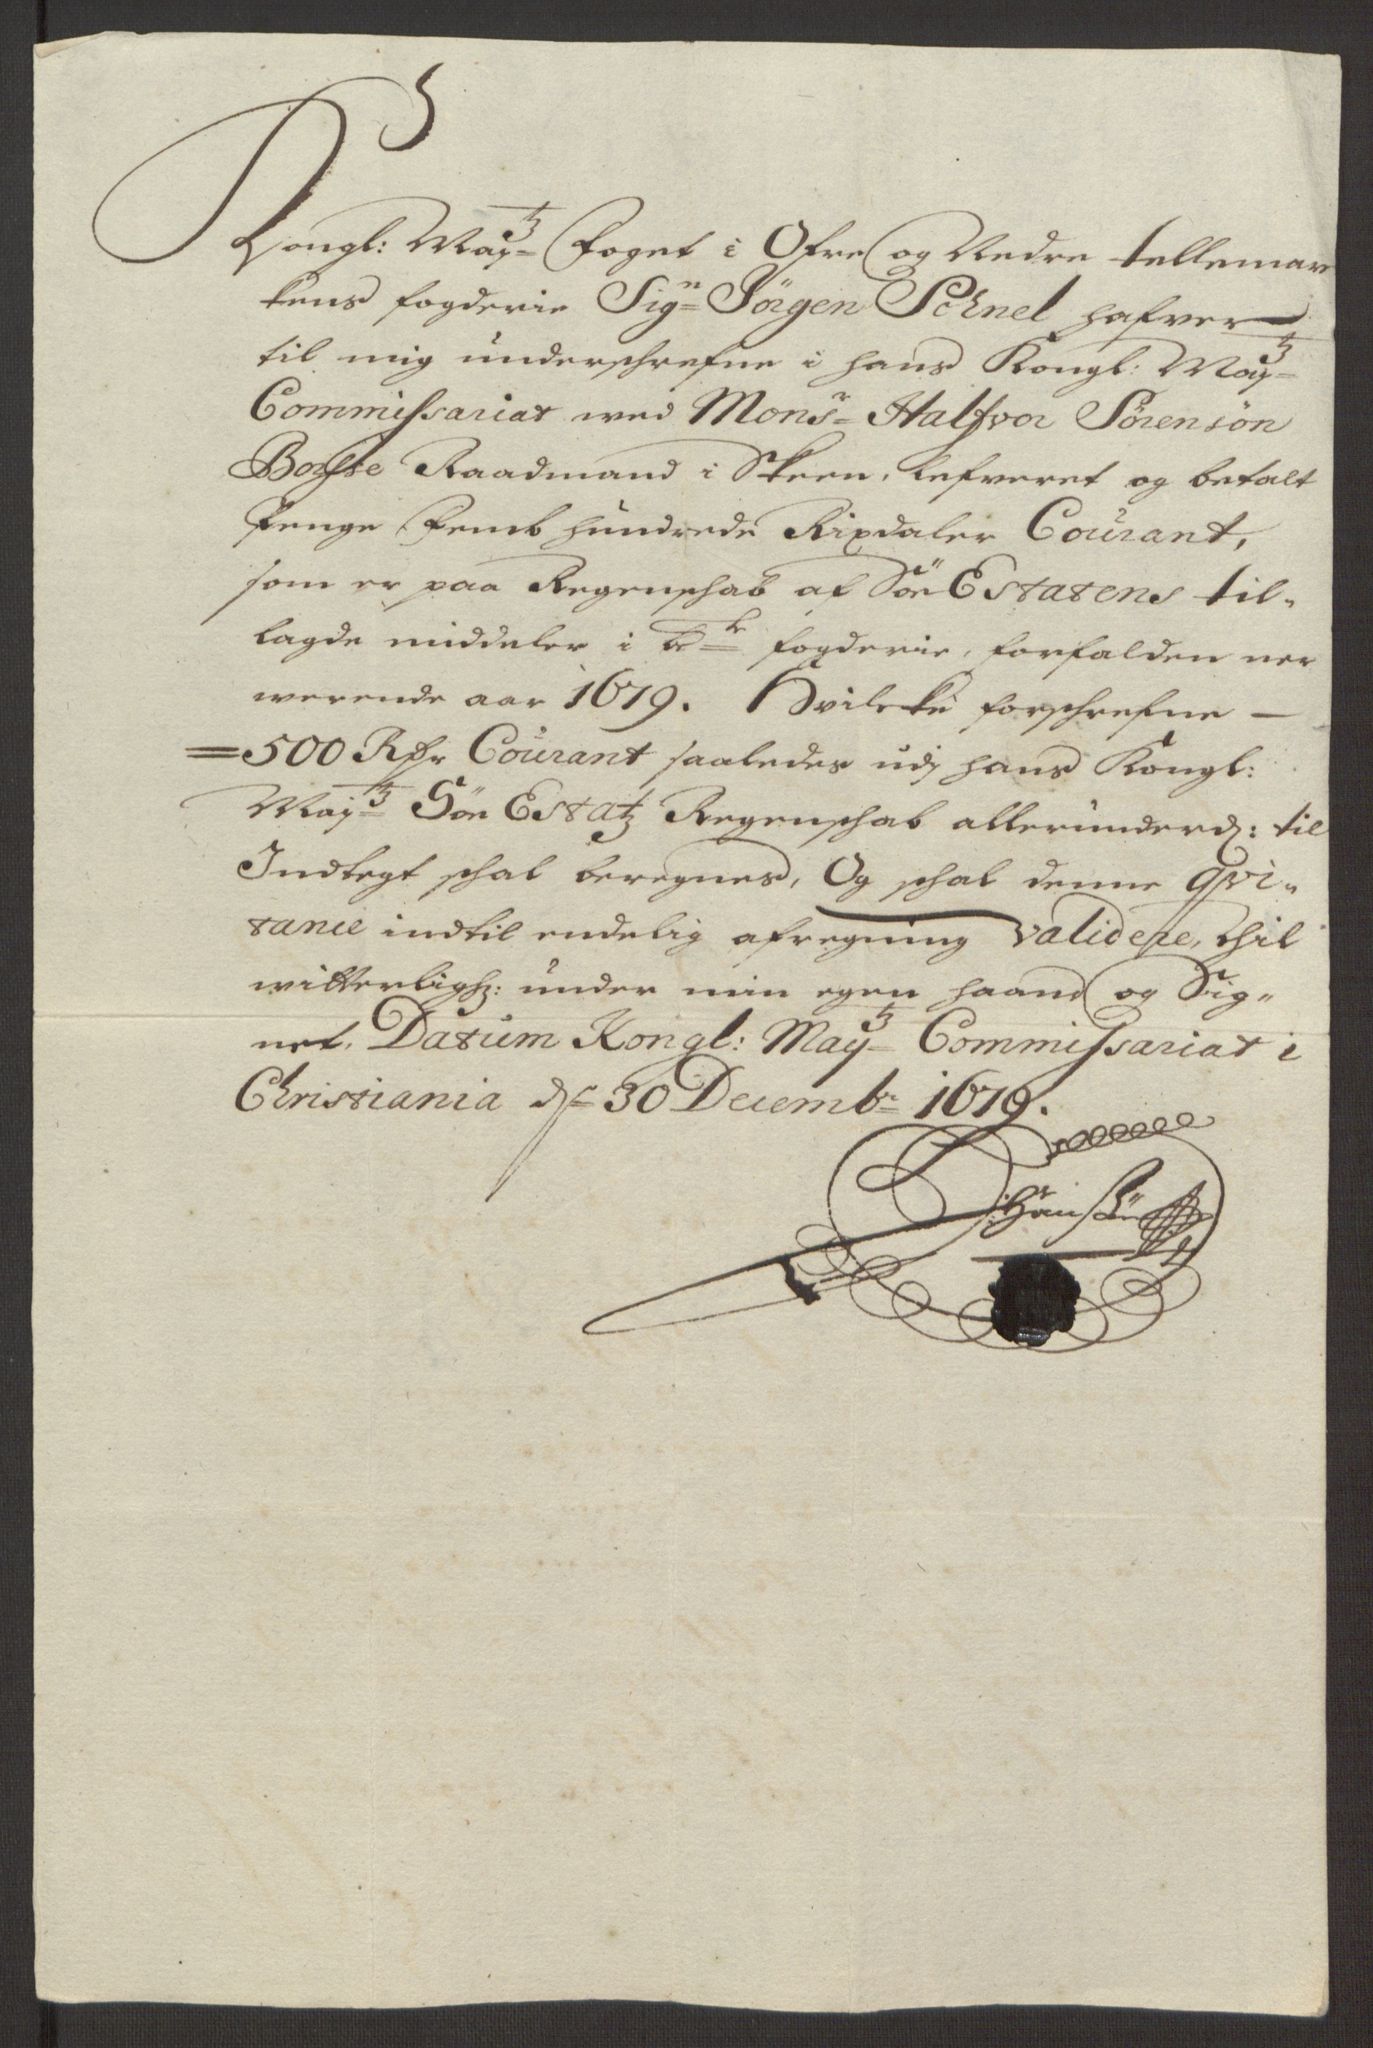 Kongl: May:tz Foget i Ofre og Nedre tellemar
kens fogderie Sig:n Jörgen Schnel hafver
til mig underschrefne i hans Kongl: May:tz
Commissariat med Mons:r Halfvor Sörensön
Borse Raadmand i Skeen, lefveret og betalt
Penge Femb hundrede Rixdaler Courant,
som er paa Regenschab af Söe Estatens til-
lagde middeler i fogderie, forfalden ner
werende aar 1679. Hvilcke forschrefne —
= 500 Rdr Courant saaledes udj hans Kongl:
May:tz Söe Estatz Regenschab allerunderd: til
Indtegt schal beregnes, Og schal denne Qvi-
tance indtil endelig afregning validere, Til
witterligh: under min egen haand og Sig-
net. Datum Kongl: May:tz Commissariat i
Christiania d: 30 Decemb:r 1679.